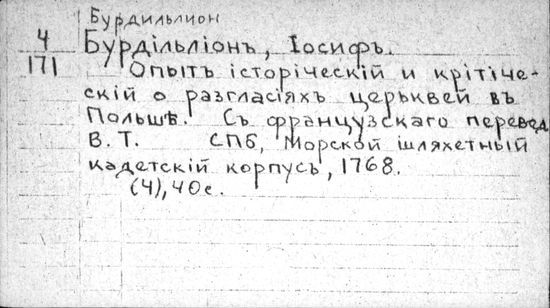 Бурдильлион
4 Бурдільліонъ, Іосифъ.
171 Опытъ історіческій и крітіче-
скій о разгласіяхъ церьквей въ
Польшѣ. Съ французскаго перевед
В. Т. СПб, Морской шляхетный
кадетскій корпусъ, 1768.
(4), 40с.